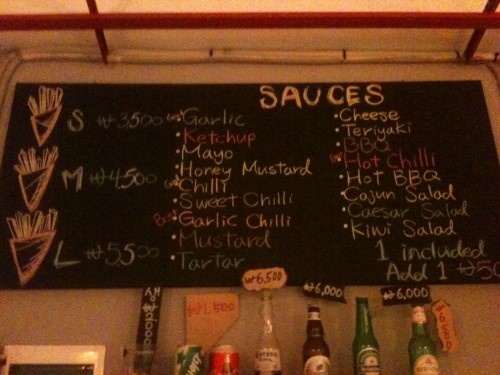 SAUCES
S ₩3,500
M ₩4,500
L ₩5,500
Garlic
Ketchup
Mayo
Honey Mustard
Chilli
Sweet Chilli
Best Garlic Chilli
Mustard
Tartar
Cheese
Teriyaki
BBQ
Hot Chilli
Hot BBQ
Cajun Salad
Caesar Salad
Kiwi Salad
1 included
Add 1 ₩50
₩6,500
₩6,000
₩6,000
₩1,500
Corona